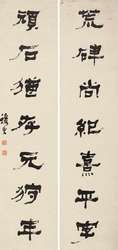 荒碑尚紀熹平字
頑石猶存元狩年